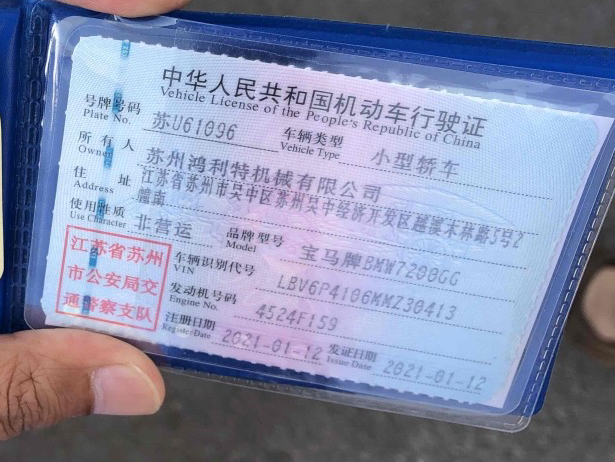 中华人民共和国机动车行驶证
Vehicle License of the People's Republic of China
号牌号码 苏U61096 车辆类型 小型轿车
Plate No. Vehicle Type
所有人 苏州鸿利特机械有限公司
Owner
住址 江苏省苏州市吴中区苏州吴中经济开发区越溪木林路3号2
Address 幢南
使用性质 非营运 品牌型号 宝马牌BMW7200GG
Use Character Model
江苏省苏州
市公安局交
通警察支队
车辆识别代号 LBV6P4106MMZ30413
VIN
发动机号码 4524F159
Engine No.
注册日期 2021-01-12 发证日期 2021-01-12
Register Date Issue Date